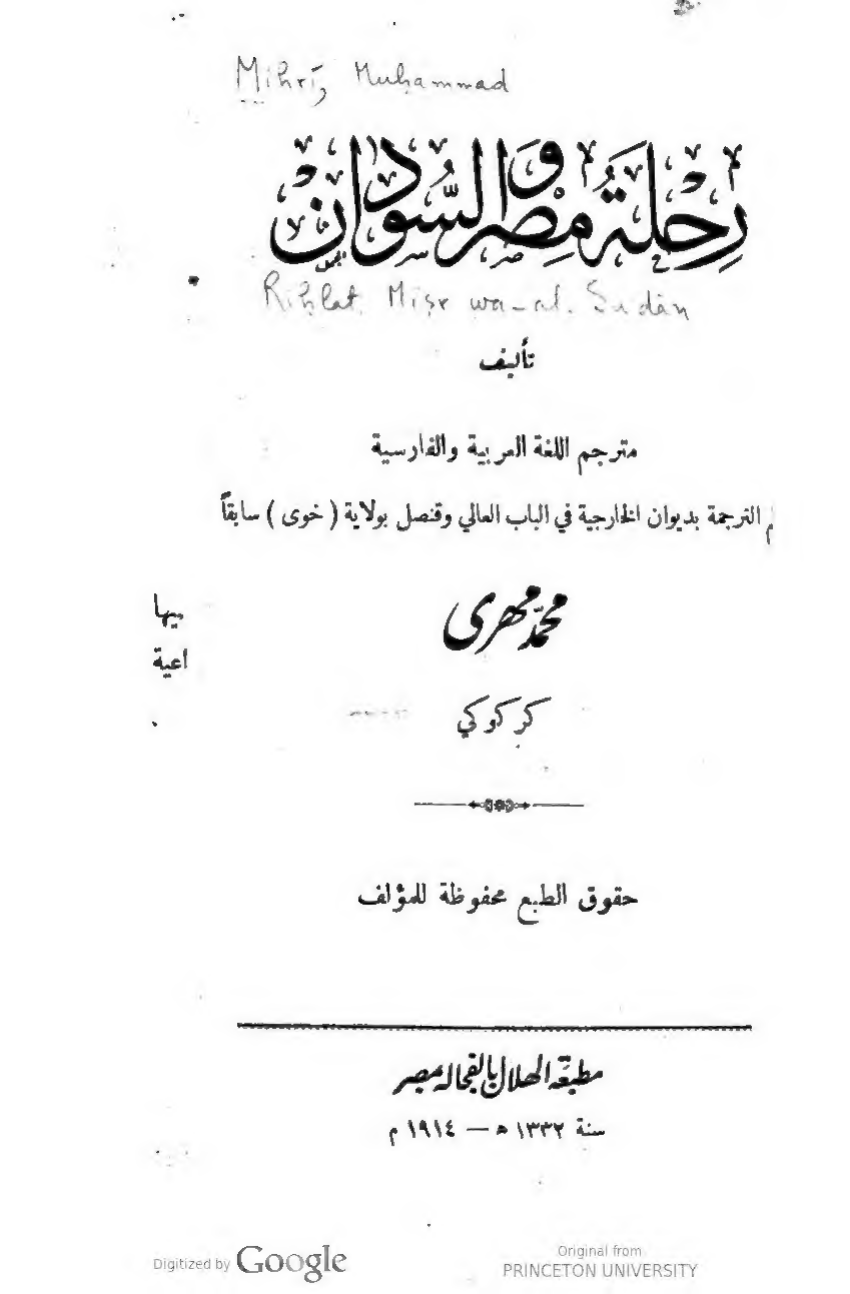 Mihrī, Muḥammad
رِحلَة مِصْر وَالسُّودان
Riḥlat Miṣr wa-al-Sudān
تأليف
مترجم اللغة العربية والفارسية
م الترجمة بديوان الخارجية في الباب العالي وقنصل بولاية ( خوى ) سابقاً
محمّد مهرى
بيها
اعية
كركوكي
حقوق الطبع محفوظة للمؤلف
مطبعة الهلال بالفجالة بمصر
سنة ١٣٣٢ ه — ١٩١٤ م
Digitized by Google
Original from
PRINCETON UNIVERSITY